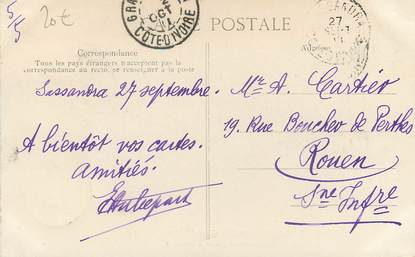 5/5
20€
POSTALE
GRA
OCT
COTE-D'IVOIRE
SSANDRA
27
SEPT
Correspondance
Tous les pays étrangers n'acceptent pas la
correspondance au recto, se renseigner à la poste
Sassandra 27 septembre.
A bientôt vos cartes.
Amitiés.
Mr A. Cartier
19, Rue Boucher de Perthes
Rouen
Sne Infre